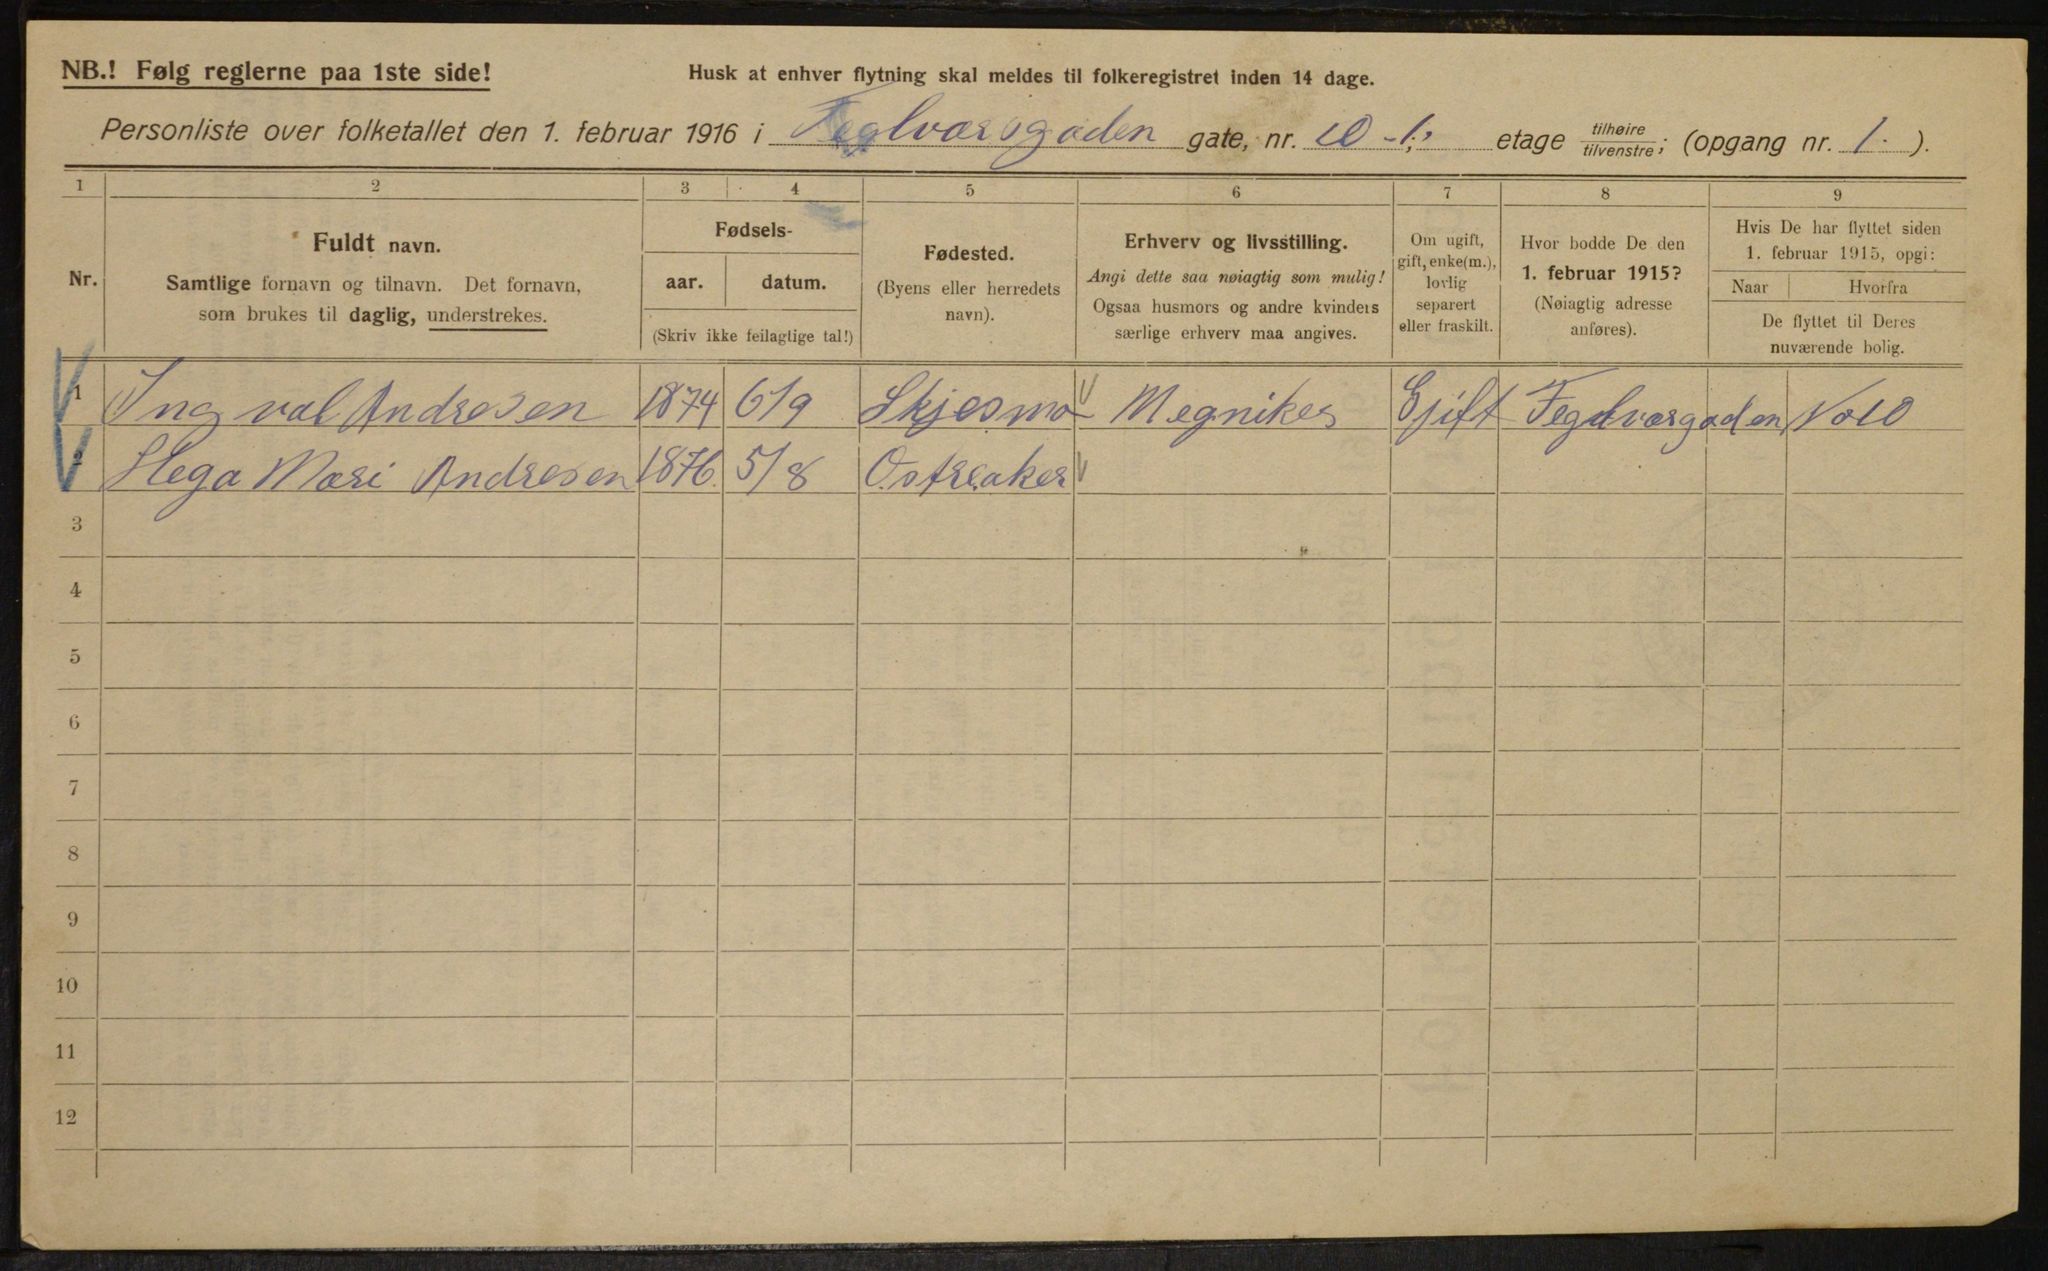 NB.! Følg reglerne paa 1ste side!
Husk at enhver flytning skal meldes til folkeregistret inden 14 dage.
Personliste over folketallet den 1. februar 1916 i Teglværsgaden gate, nr. 10 - 1, etage tilhøire tilvenstre; (opgang nr. 1. ).
1 2 3 4 5 6 7 8 9
Nr.
Fuldt navn.
Samtlige fornavn og tilnavn. Det fornavn,
som brukes til daglig, understrekes.
Fødsels-
aar. datum.
(Skriv ikke feilagtige tal!)
Fødested.
(Byens eller herredets
navn).
Erhverv og livsstilling.
Angi dette saa nøiagtig som mulig!
Ogsaa husmors og andre kvinders
særlige erhverv maa angives.
Om ugift,
gift, enke(m.),
lovlig
separert
eller fraskilt.
Hvor bodde De den
1. februar 1915?
(Nøiagtig adresse
anføres).
Hvis De har flyttet siden
1. februar 1915, opgi:
Naar Hvorfra
De flyttet til Deres
nuværende bolig.
1 Ingval Andresen 1874 6/9 Skjesmo Megnikes Gjift Teglværsgaden No 10
2 Hega Mari Andresen 1876. 5/8 Østreaker
3
4
5
6
7
8
9
10
11
12